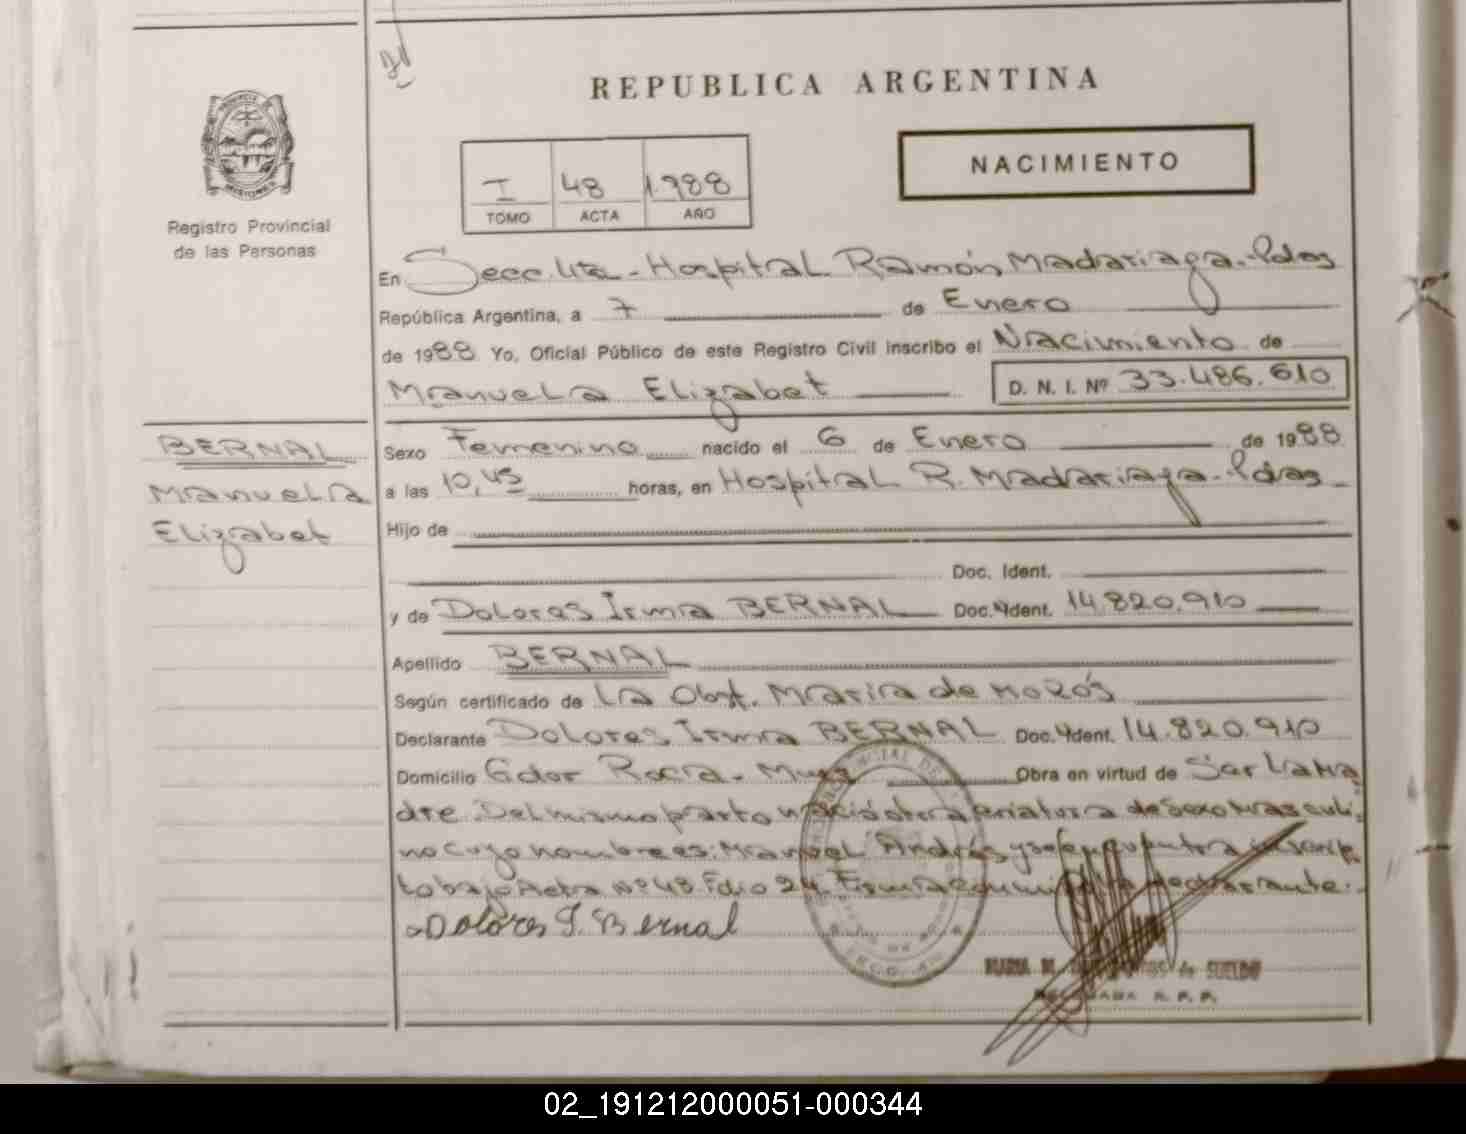 REPUBLICA ARGENTINA
NACIMIENTO
I 48 1.988
TOMO ACTA AÑO
PROVINCIA DE
MISIONES
Registro Provincial
de las Personas
En Secc. 4ta - Hospital Ramón Madariaga - Pdas
República Argentina, a 7 de Enero
de 1988 Yo, Oficial Público de este Registro Civil inscribo el Nacimiento de
Manuela Elizabet D. N. I. Nº 33.486.610
BERNAL
Manuela
Elizabet
Sexo Femenino nacido el 6 de Enero de 1988
a las 10,45 horas, en Hospital R. Madariaga - Pdas
Hijo de
Doc. Ident.
y de Dolores Irma BERNAL Doc. Ident. 14.820.910
Apellido BERNAL
Según certificado de la Obst. Maria de
Declarante Dolores Irma BERNAL Doc. Ident. 14.820.910
Domicilio Gdor Roca - Mnes Obra en virtud de Ser la Ma
dre. Del mismo parto nació otra criatura de Sexo Masculi
no cuyo nombre es: Manuel Andrés y se encuentra inscrip
to bajo Acta Nº 48 Folio 24. Firma conmigo la declarante.-
Dolores I. Bernal
de SUELDO
R. P. P.
02_191212000051-000344